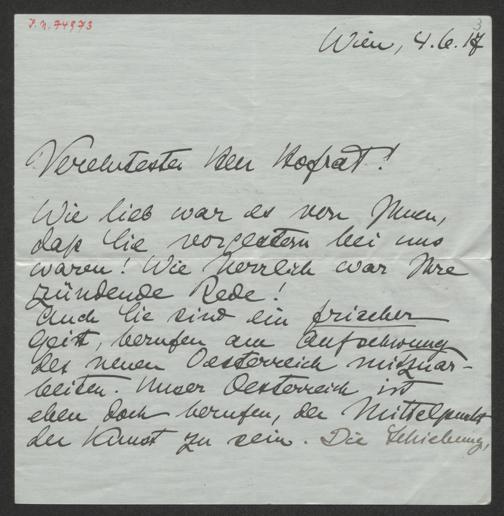 I.N. 74973
3
Wien, 4.6.17
Verehrtester Herr Hofrat!
Wie lieb war es von Ihnen,
daß Sie vorgestern bei uns
waren! Wie herrlich war Ihre
zündende Rede!
Auch Sie sind ein frischer
Geist, berufen am Aufschwung
des neuen Oesterreich mitzuar-
beiten. Unser Oesterreich ist
eben doch berufen, der Mittelpunkt
der Kunst zu sein. Die Schiebung,